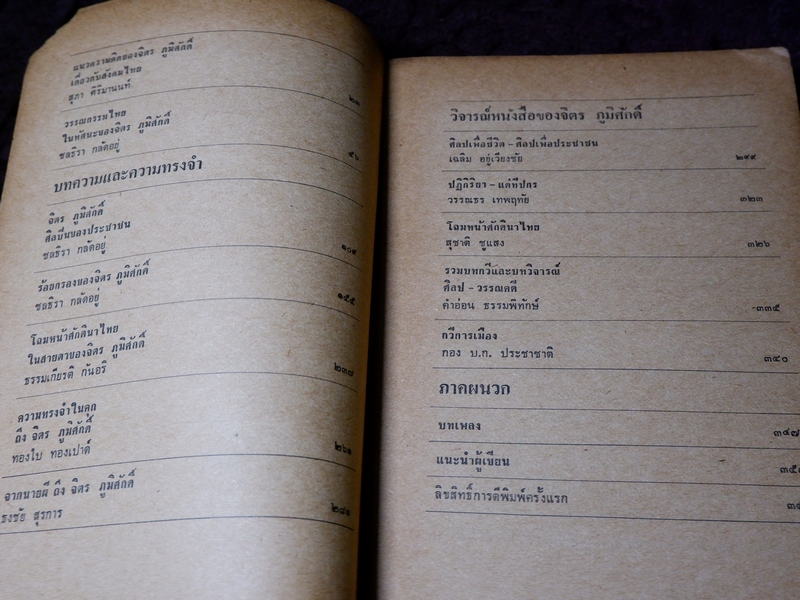 แนวความคิดของจิตร ภูมิศักดิ์
เกี่ยวกับสังคมไทย
สุภา ศิริมานนท์
๒๑
วรรณกรรมไทย
ในทัศนะของจิตร ภูมิศักดิ์
ชลธิรา กลัดอยู่
๕๖
บทความและความทรงจำ
จิตร ภูมิศักดิ์
ศิลปินของประชาชน
ชลธิรา กลัดอยู่
๑๐๙
ร้อยกรองของจิตร ภูมิศักดิ์
ชลธิรา กลัดอยู่
๑๕๕
โฉมหน้าศักดินาไทย
ในสายตาของจิตร ภูมิศักดิ์
ธรรมเกียรติ กันอริ
๒๓๗
ความทรงจำในคุก
ถึง จิตร ภูมิศักดิ์
ทองใบ ทองเปาด์
๒๖๑
จากนายผี ถึง จิตร ภูมิศักดิ์
ธงชัย สุรการ
๒๘๑
วิจารณ์หนังสือของจิตร ภูมิศักดิ์
ศิลปเพื่อชีวิต – ศิลปเพื่อประชาชน
เฉลิม อยู่เวียงชัย
๒๙๙
ปฏิกิริยา – แด่ทีปกร
วรรณธร เทพฤทัย
๓๒๓
โฉมหน้าศักดินาไทย
สุชาติ ชูแสง
๓๒๖
รวมบทกวีและบทวิจารณ์
ศิลป – วรรณคดี
คำอ่อน ธรรมพิทักษ์
๓๓๕
กวีการเมือง
กอง บ.ก. ประชาชาติ
๓๔๐
ภาคผนวก
บทเพลง
๓๔๗
แนะนำผู้เขียน
ลิขสิทธิ์การตีพิมพ์ครั้งแรก